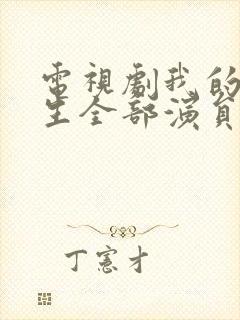 電視劇我的
生全部演員
丁憲才